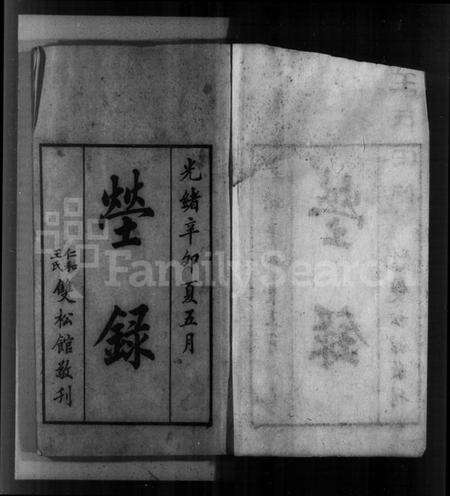 光緒辛卯夏五月
塋録
仁和
王氏
雙松館敬刊
FamilySearch